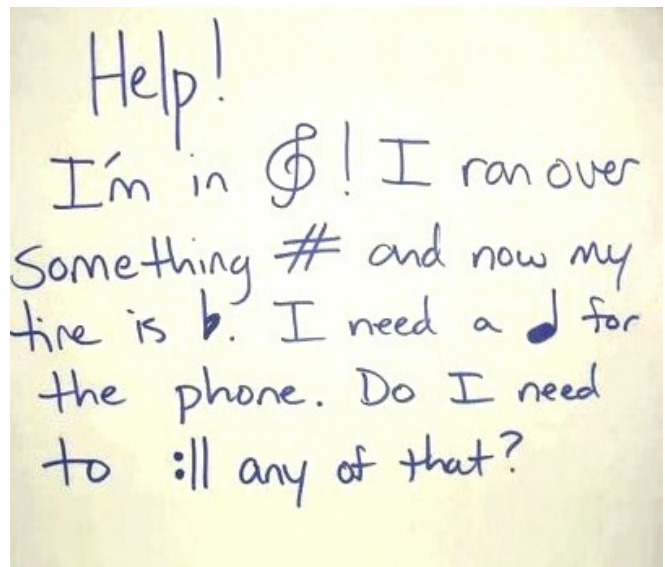 Help!
I'm in 𝄞! I ran over
something # and now my
tire is ♭. I need a ♩ for
the phone. Do I need
to :|| any of that?